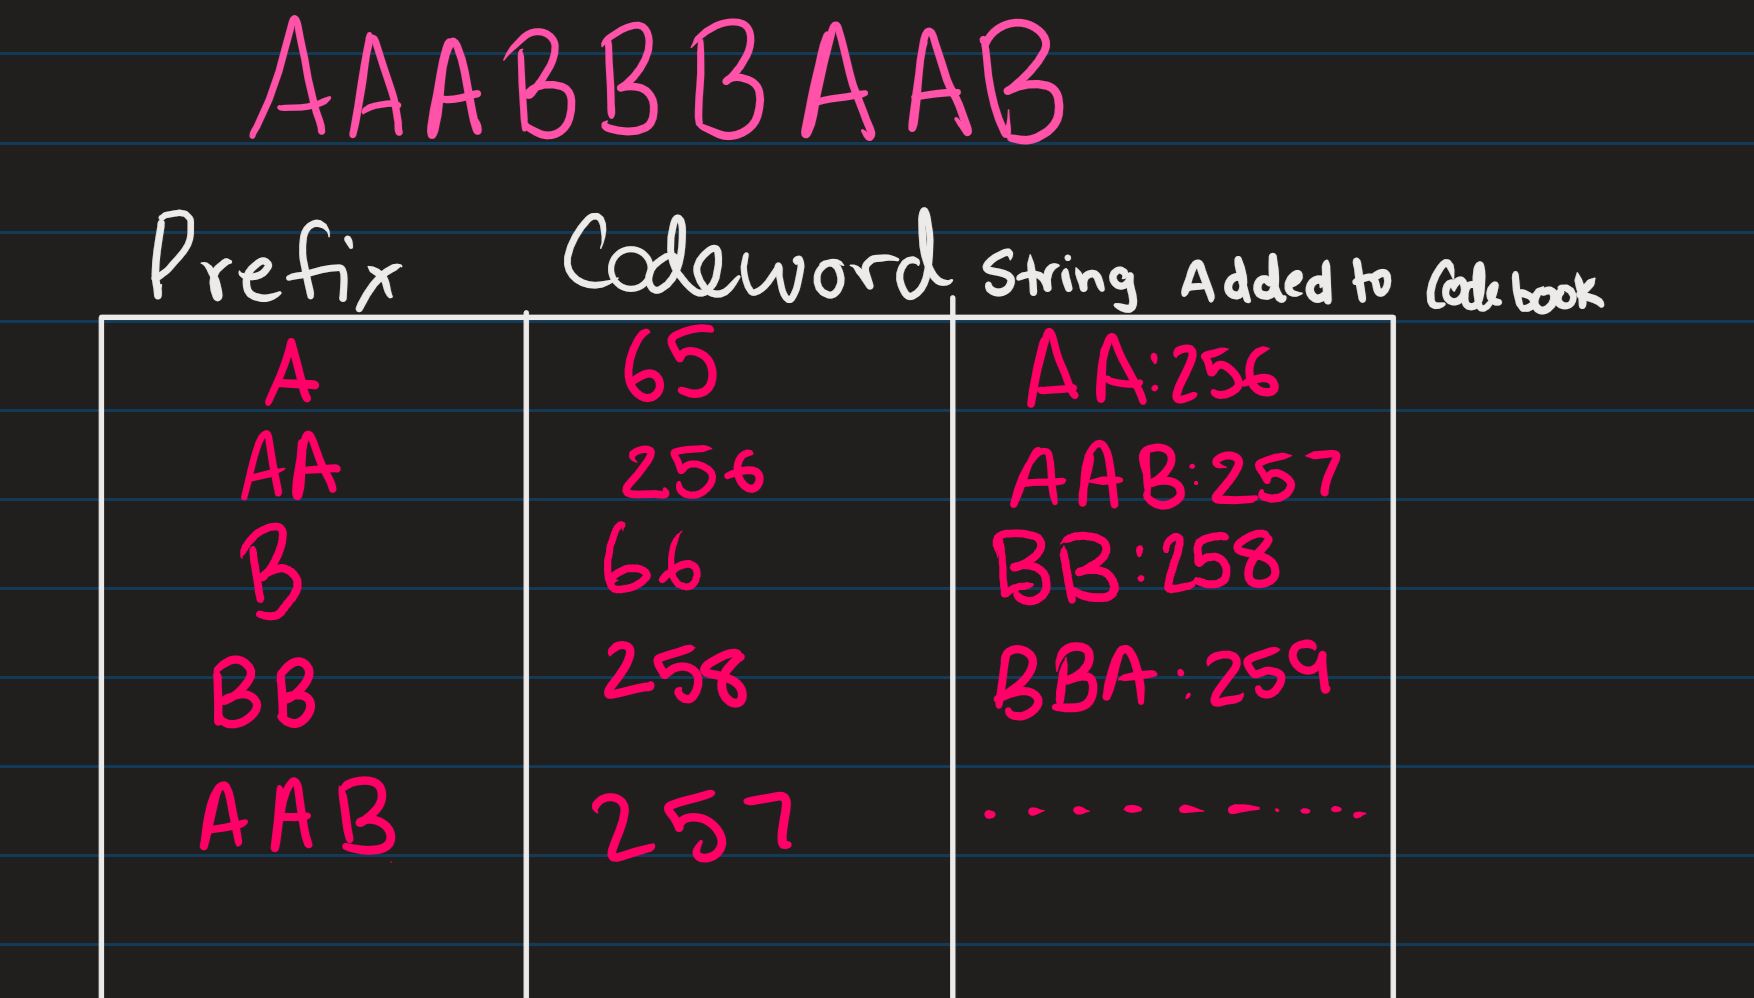 AAABBBAAB
Prefix Codeword String Added to Codebook
A 65 AA:256
AA 256 AAB:257
B 66 BB:258
BB 258 BBA:259
AAB 257 - - - - - - - - - -